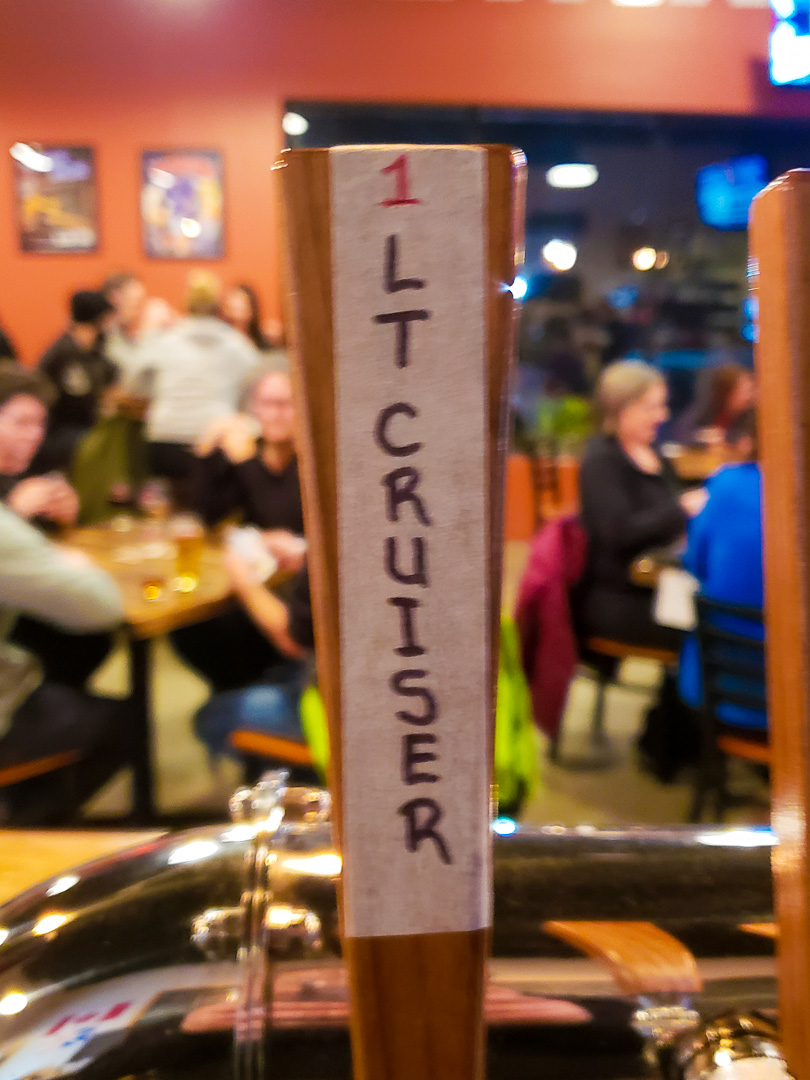 1
LT
CRUISER